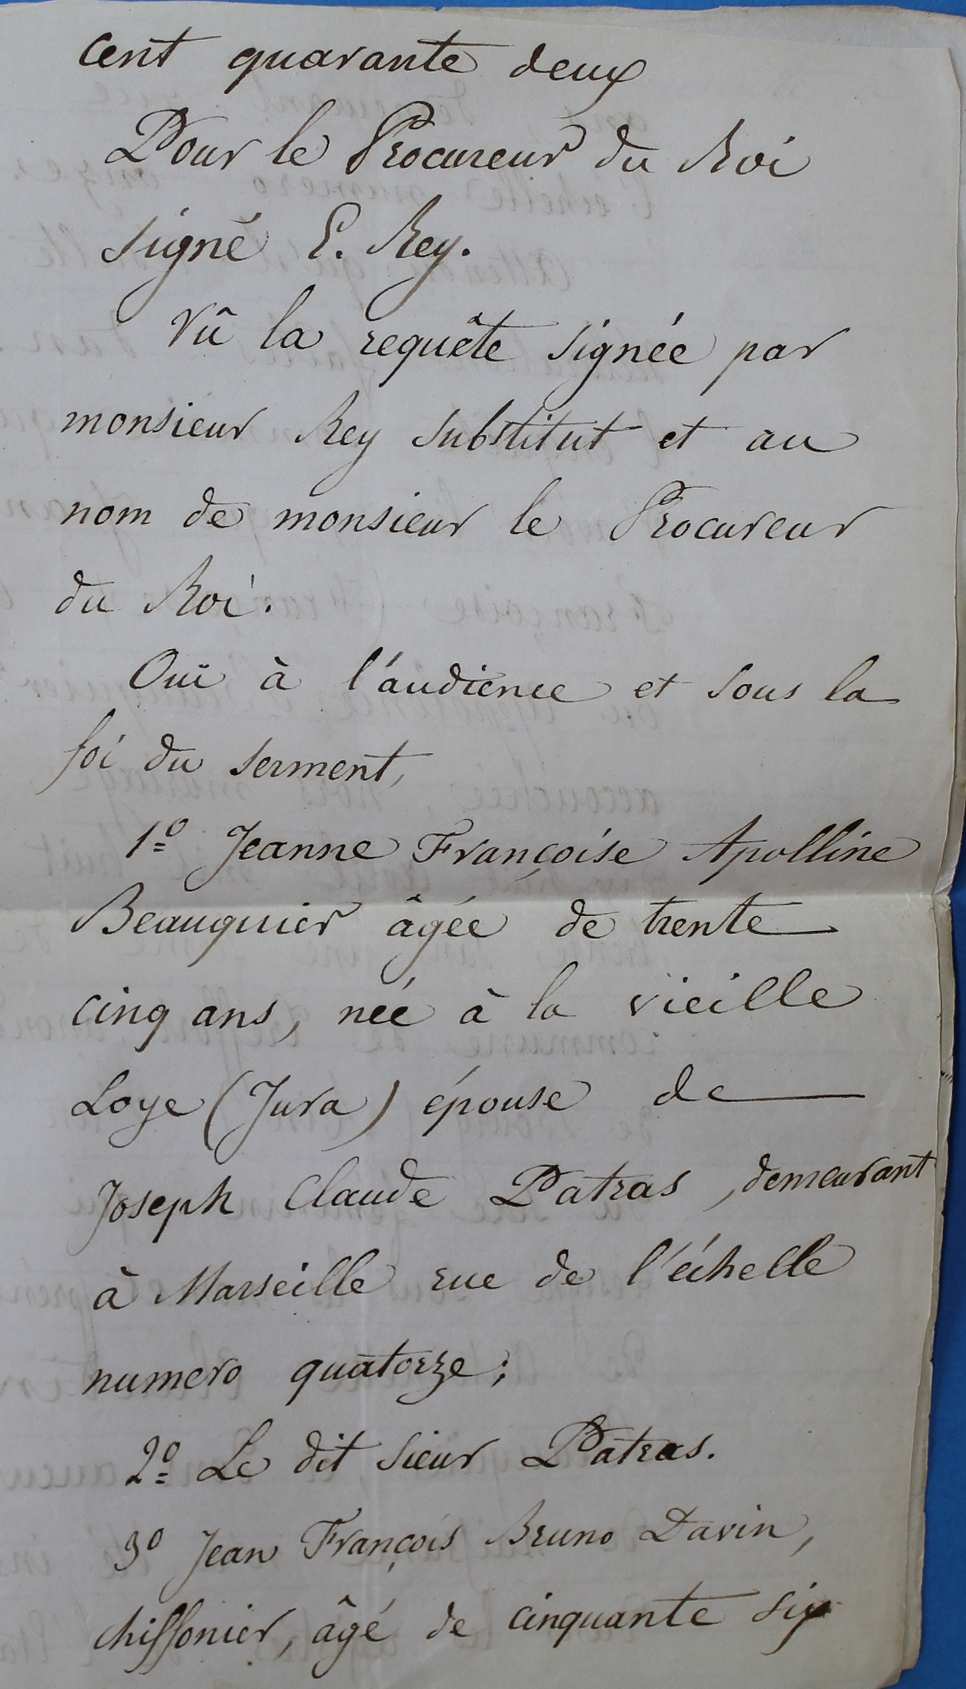 cent quarante deux
Pour le Procureur du Roi
signé E. Rey.
Vû la requête signée par
monsieur Rey substitut et au
nom de monsieur le Procureur
du Roi.
Oui à l'audience et sous la
foi du serment,
1º Jeanne Françoise Apolline
Beauquier âgée de trente
cinq ans, née à la vieille
Loye (Jura) épouse de
Joseph Claude Patras, demeurant
à Marseille rue de l'échelle
numero quatorze;
2º Le dit sieur Patras.
3º Jean François Bruno Davin,
chiffonier, âgé de cinquante six